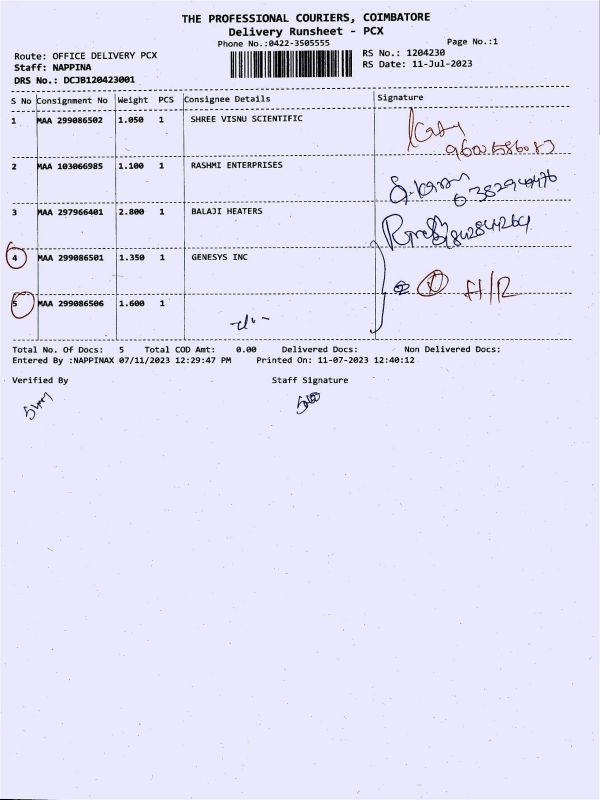 THE PROFESSIONAL COURIERS, COIMBATORE
Delivery Runsheet - PCX
Phone No.:0422-3505555 Page No.:1
Route: OFFICE DELIVERY PCX RS No.: 1204230
Staff: NAPPINA RS Date: 11-Jul-2023
DRS No.: DCJB120423001
S No Consignment No Weight PCS Consignee Details Signature
1 MAA 299086502 1.050 1 SHREE VISNU SCIENTIFIC
2 MAA 103066985 1.100 1 RASHMI ENTERPRISES
3 MAA 297966401 2.800 1 BALAJI HEATERS
4 MAA 299086501 1.350 1 GENESYS INC
H/R
5 MAA 299086506 1.600 1
Total No. Of Docs: 5 Total COD Amt: 0.00 Delivered Docs: Non Delivered Docs:
Entered By :NAPPINAX 07/11/2023 12:29:47 PM Printed On: 11-07-2023 12:40:12
Verified By Staff Signature